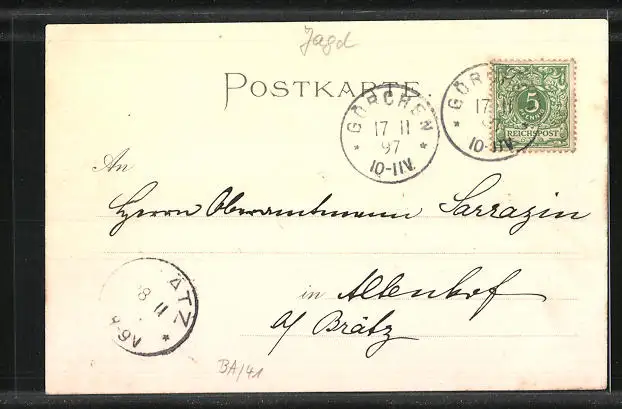 Jagd
POSTKARTE.
GÖRCHEN
17 11
97
10-11V.
GÖRCHEN
17 11
10-11V.
5
PFENNIG
REICHSPOST
An
Herrn Oberamtmann Sarrazin
in Altenhof
a/ Brätz
ÄTZ
8 11
8-9V
BA/41